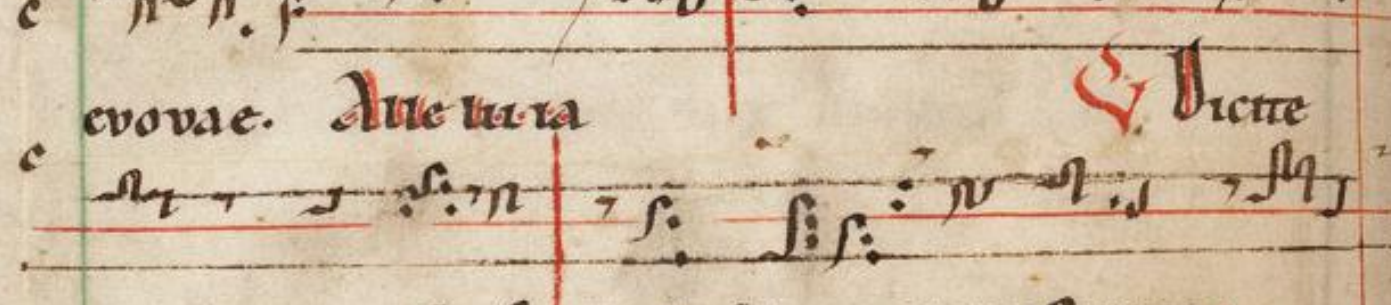 c
evovae. Alleluia V Dicite
c